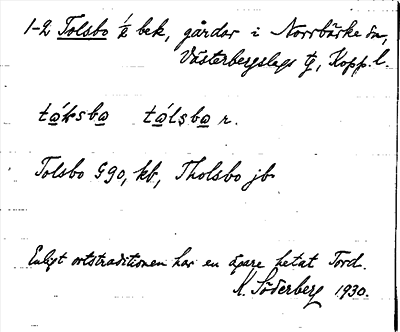 1-2 Tolsbo 1/8 bek, gårdar i Norrbärke sn,
Västerbergslags tg, Kopp. l.
tǻksba tǻlsba r.
Tolsbo G90, kb, Tholsbo jb
Enligt ortstraditionen har en ägare hetat Tord.
K. Söderberg 1930.